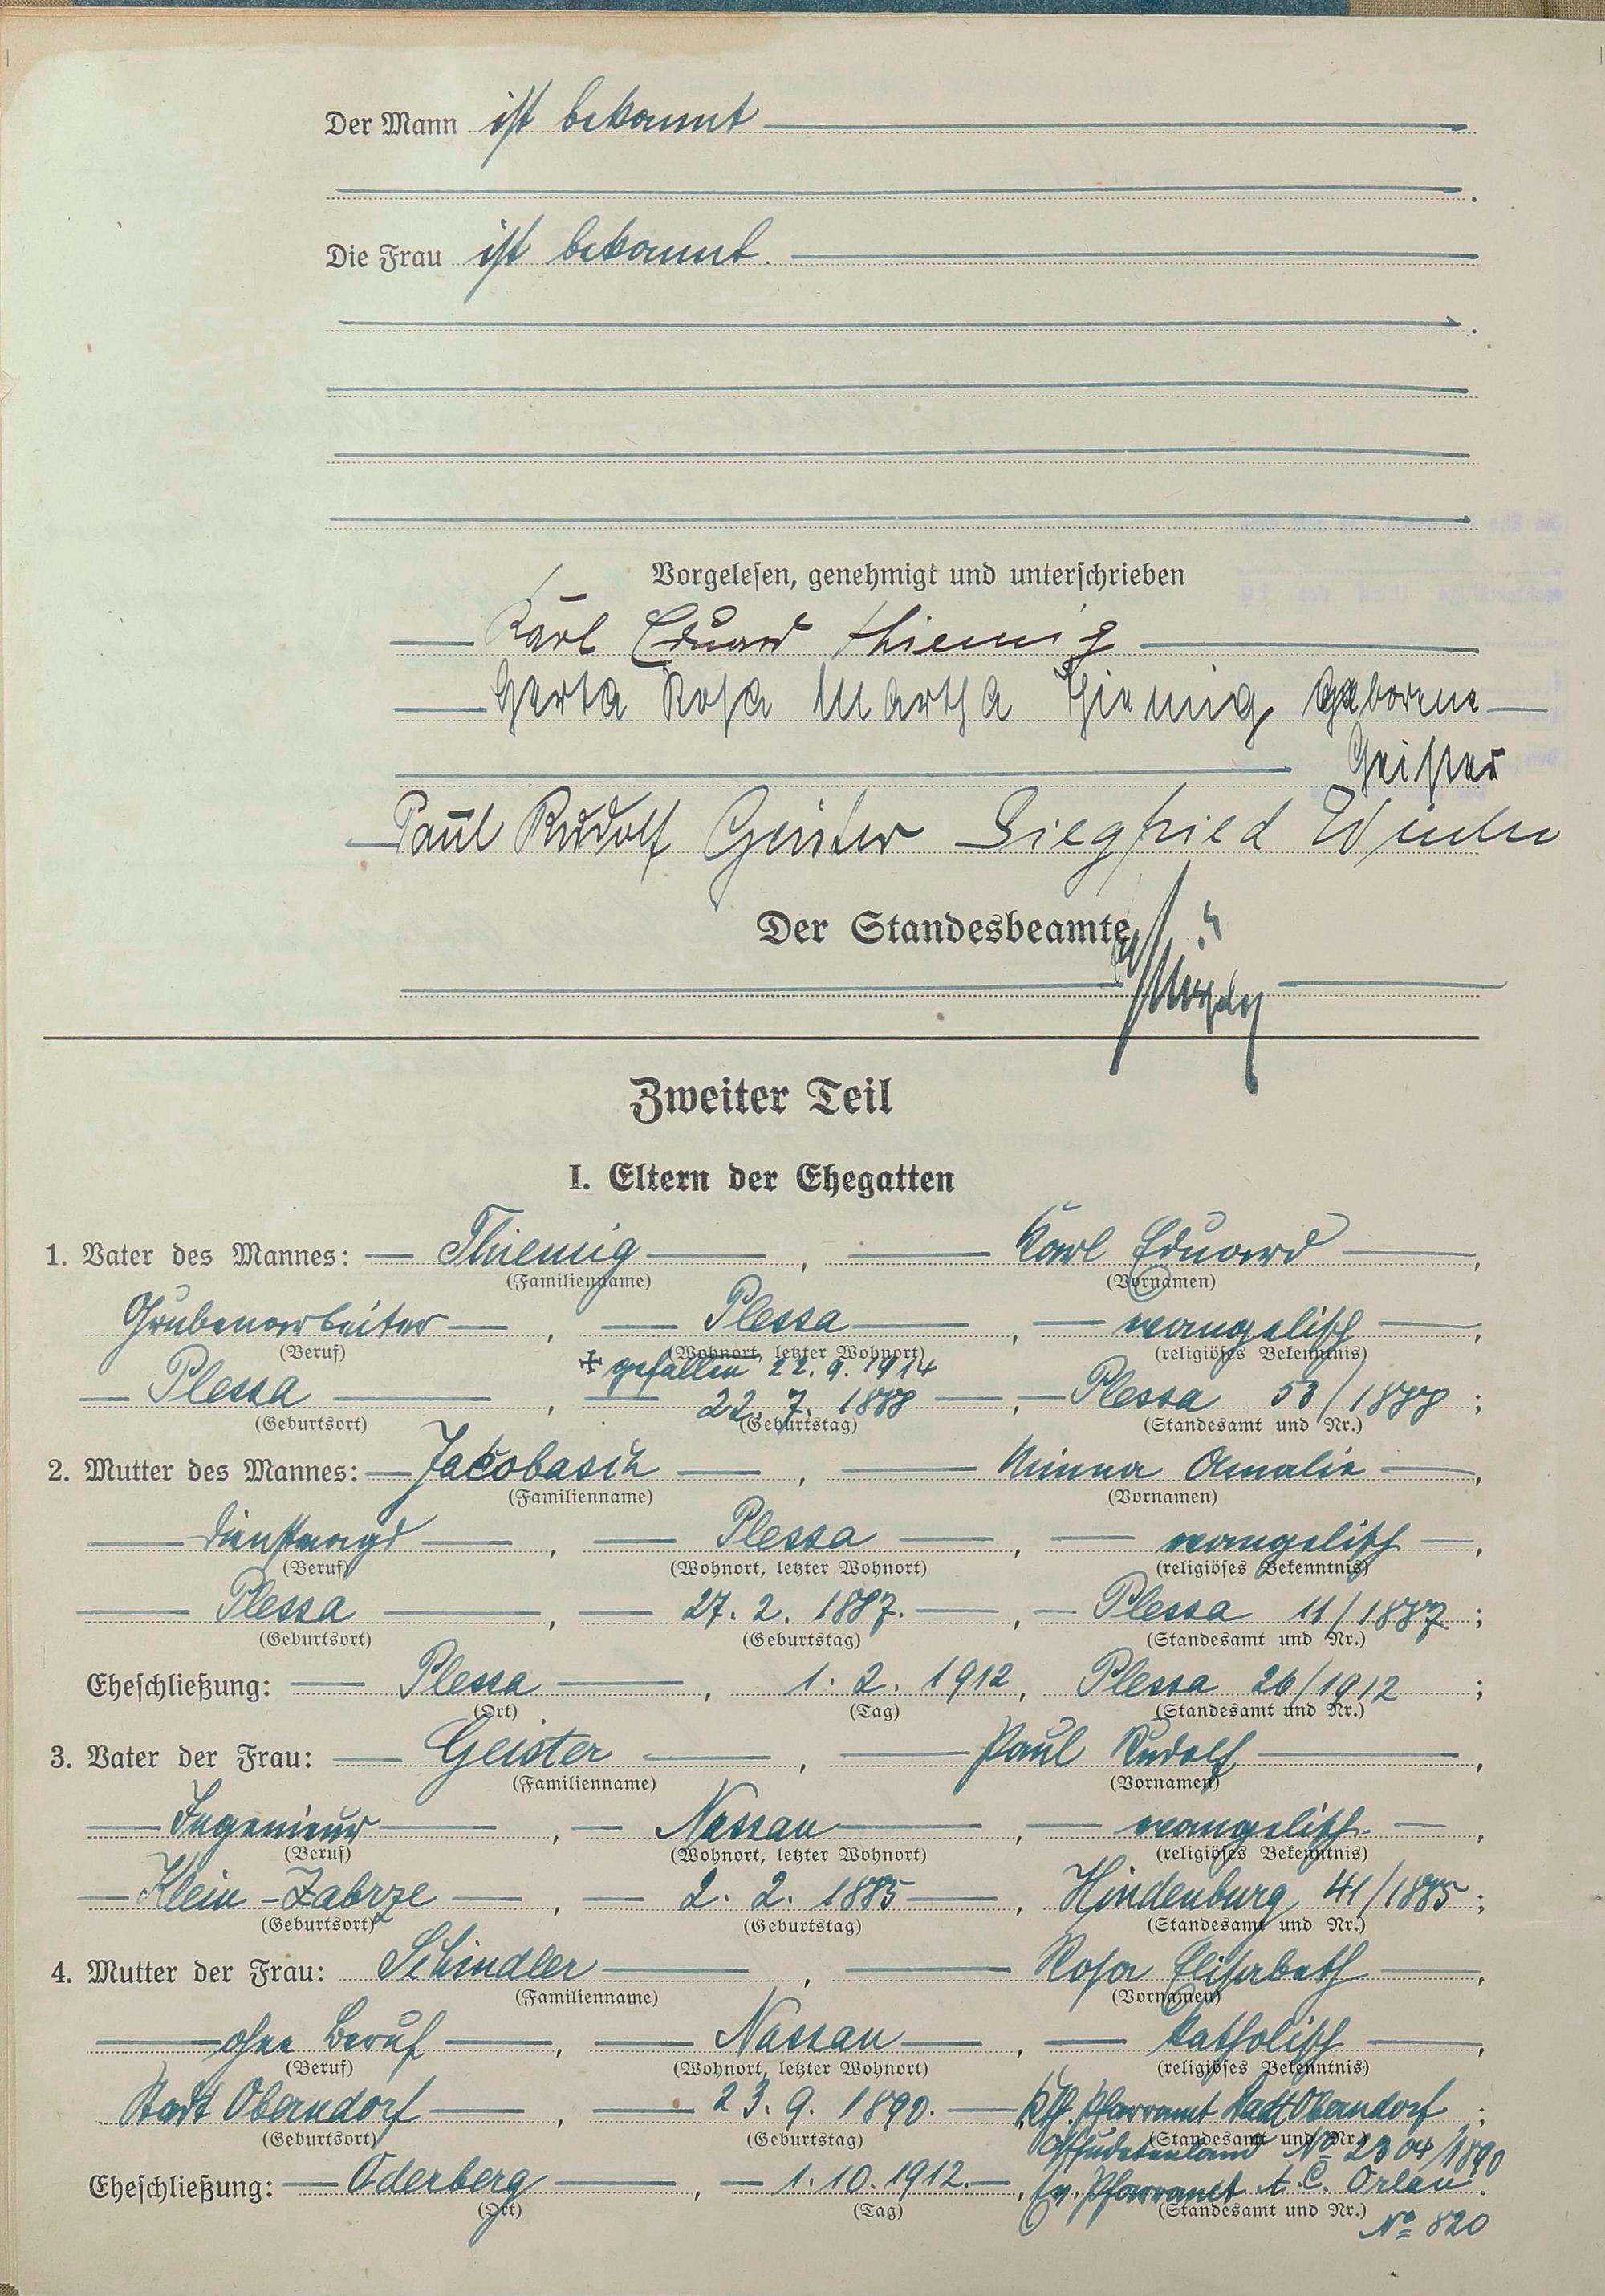 Der Mann ist bekannt
Die Frau ist bekannt.
Vorgelesen, genehmigt und unterschrieben
Karl Eduard Thiemig
Gerta Rosa Martha Thiemig geborene
Geister
Paul Rudolf Geister Siegfried
Der Standesbeamte
Zweiter Teil
I. Eltern der Ehegatten
1. Vater des Mannes: Thiemig, Karl Eduard,
(Familienname) (Vornamen)
Grubenarbeiter, Plessa, evangelisch,
(Beruf) (Wohnort, letzter Wohnort) (religiöses Bekenntnis)
+ gefallen 22.9.1914
Plessa, 22.7.1888, Plessa 53/1888;
(Geburtsort) (Geburtstag) (Standesamt und Nr.)
2. Mutter des Mannes: Jacobasch, Minna Amalie,
(Familienname) (Vornamen)
Dienstmagd, Plessa, evangelisch,
(Beruf) (Wohnort, letzter Wohnort) (religiöses Bekenntnis)
Plessa, 27.2.1887., Plessa 11/1887;
(Geburtsort) (Geburtstag) (Standesamt und Nr.)
Eheschließung: Plessa, 1.2.1912, Plessa 26/1912;
(Ort) (Tag) (Standesamt und Nr.)
3. Vater der Frau: Geister, Paul Rudolf,
(Familienname) (Vornamen)
Ingenieur, Nassau, evangelisch.,
(Beruf) (Wohnort, letzter Wohnort) (religiöses Bekenntnis)
Klein-Zabrze, 2.2.1885, Hindenburg 41/1885;
(Geburtsort) (Geburtstag) (Standesamt und Nr.)
4. Mutter der Frau: Schindler, Rosa Elisabeth,
(Familienname) (Vornamen)
ohne Beruf, Nassau, katholisch,
(Beruf) (Wohnort, letzter Wohnort) (religiöses Bekenntnis)
Stadt Oberndorf, 23.9.1890. Kth. Pfarramt Stadt Oberndorf;
(Geburtsort) (Geburtstag) (Standesamt und Nr.)
No 2304/1890
Eheschließung: Oderberg, 1.10.1912., Ev. Pfarramt A.C. Orlau.
(Ort) (Tag) (Standesamt und Nr.)
No 820